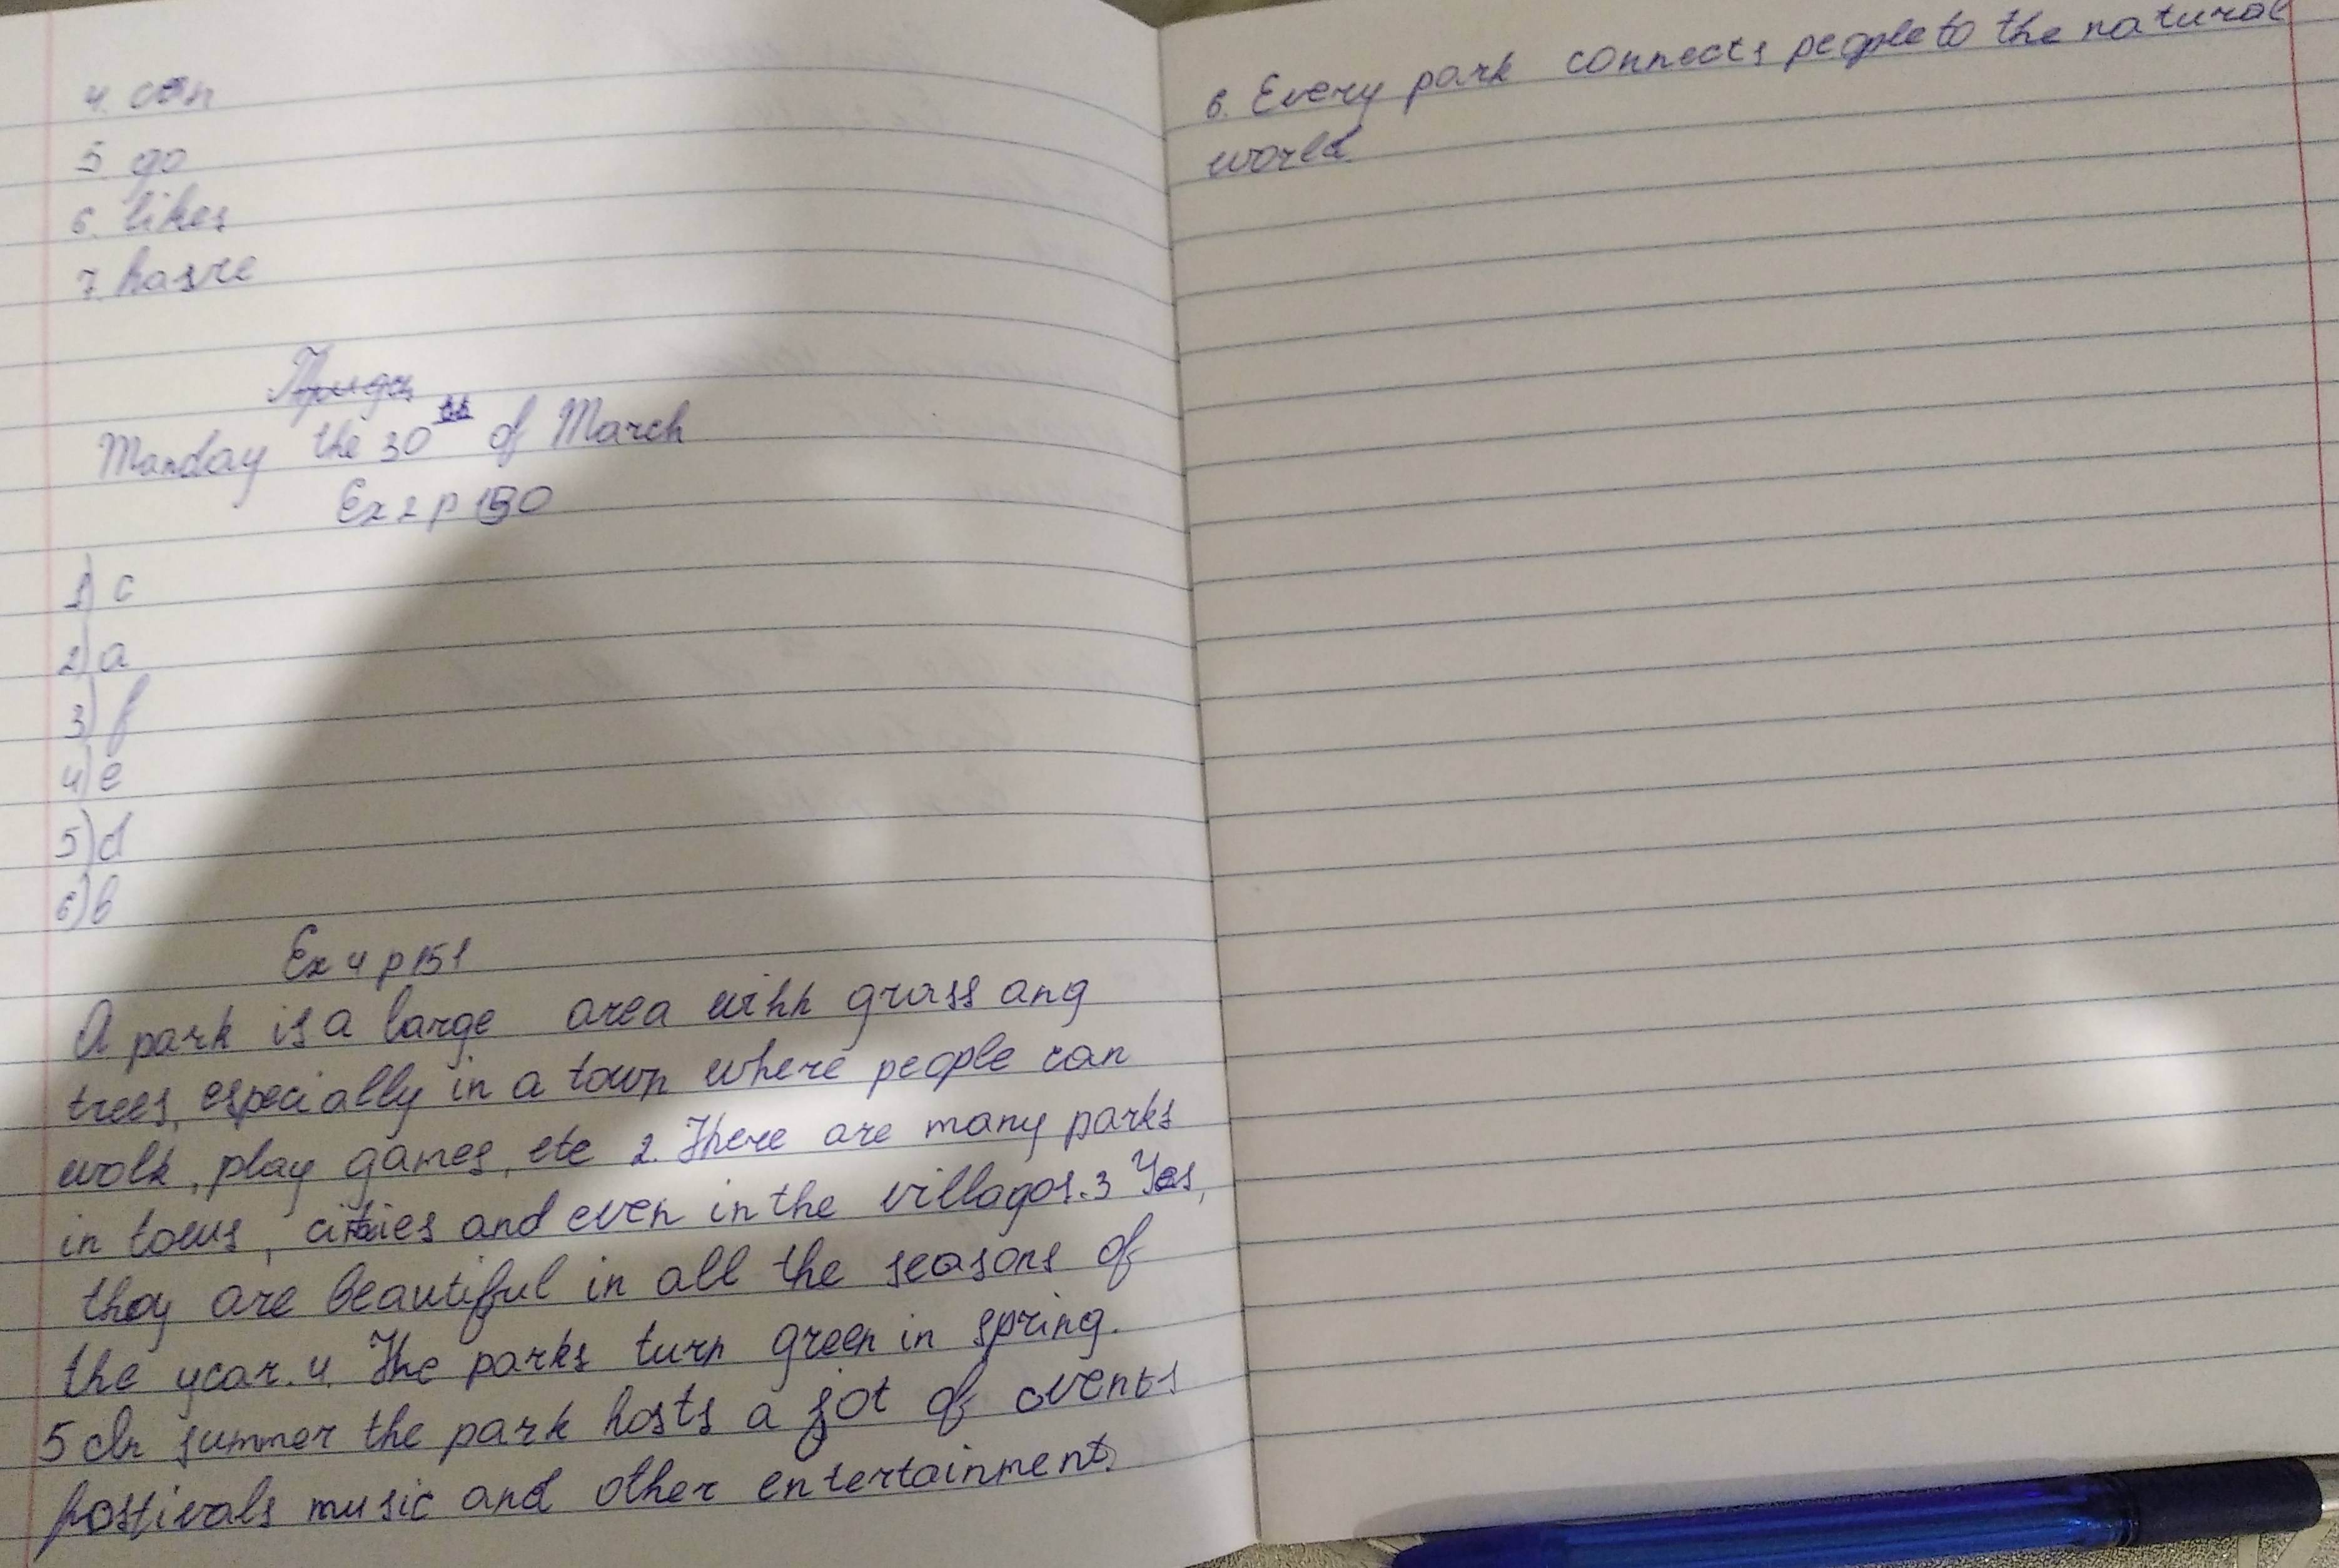 4. can
5 go
6. likes
7. hasve
Manday the 30th of March
Ex 2 p 150
1) c
2) a
3) f
4) e
5) d
6) b
Ex 4 p 151
A park is a large area wihh grass ang
trees, especially in a town where people can
walk, play games, etc 2. There are many parks
in towns, cities and even in the villages. 3 Yes,
they are beautiful in all the seasons of
the year. 4. The parks turn green in spring.
5 In summer the park hosts a jot of events
festivals music and other entertainment.
6. Every park connects people to the natural
world